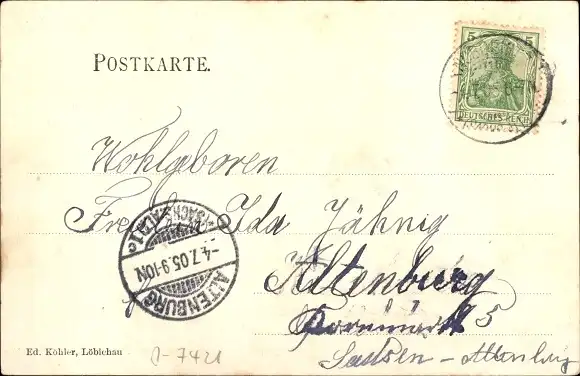 POSTKARTE.
5 5
DEUTSCHES REICH
Wohlgeboren
Ida Jähnig
Altenburg
Kornmarkt 5
Sachsen - Altenburg
ALTENBURG
-4.7.05.9-10V.
Ed. Köhler, Löbichau
7421